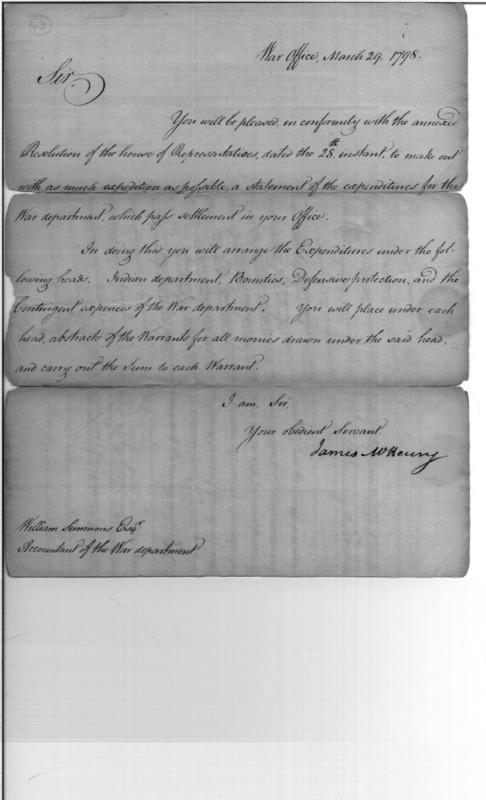 43
War Office, March 29. 1798.
Sir
You will be pleased, in conformity with the annexed
Resolution of the house of Representatives, dated the 28th instant, to make out
with as much expedition as possible, a statement of the expenditures for the
War department, which pass settlement in your Office.
In doing this you will arrange the Expenditures under the fol-
lowing heads. Indian department, Bounties, Defensive protection, and the
Contingent expences of the War department. You will place under each
head, abstracts of the Warrants for all monies drawn under the said head,
and carry out the Sum to each Warrant.
I am, Sir,
Your obedient Servant,
James McHenry
William Simmons Esqr.
Accountant of the War department